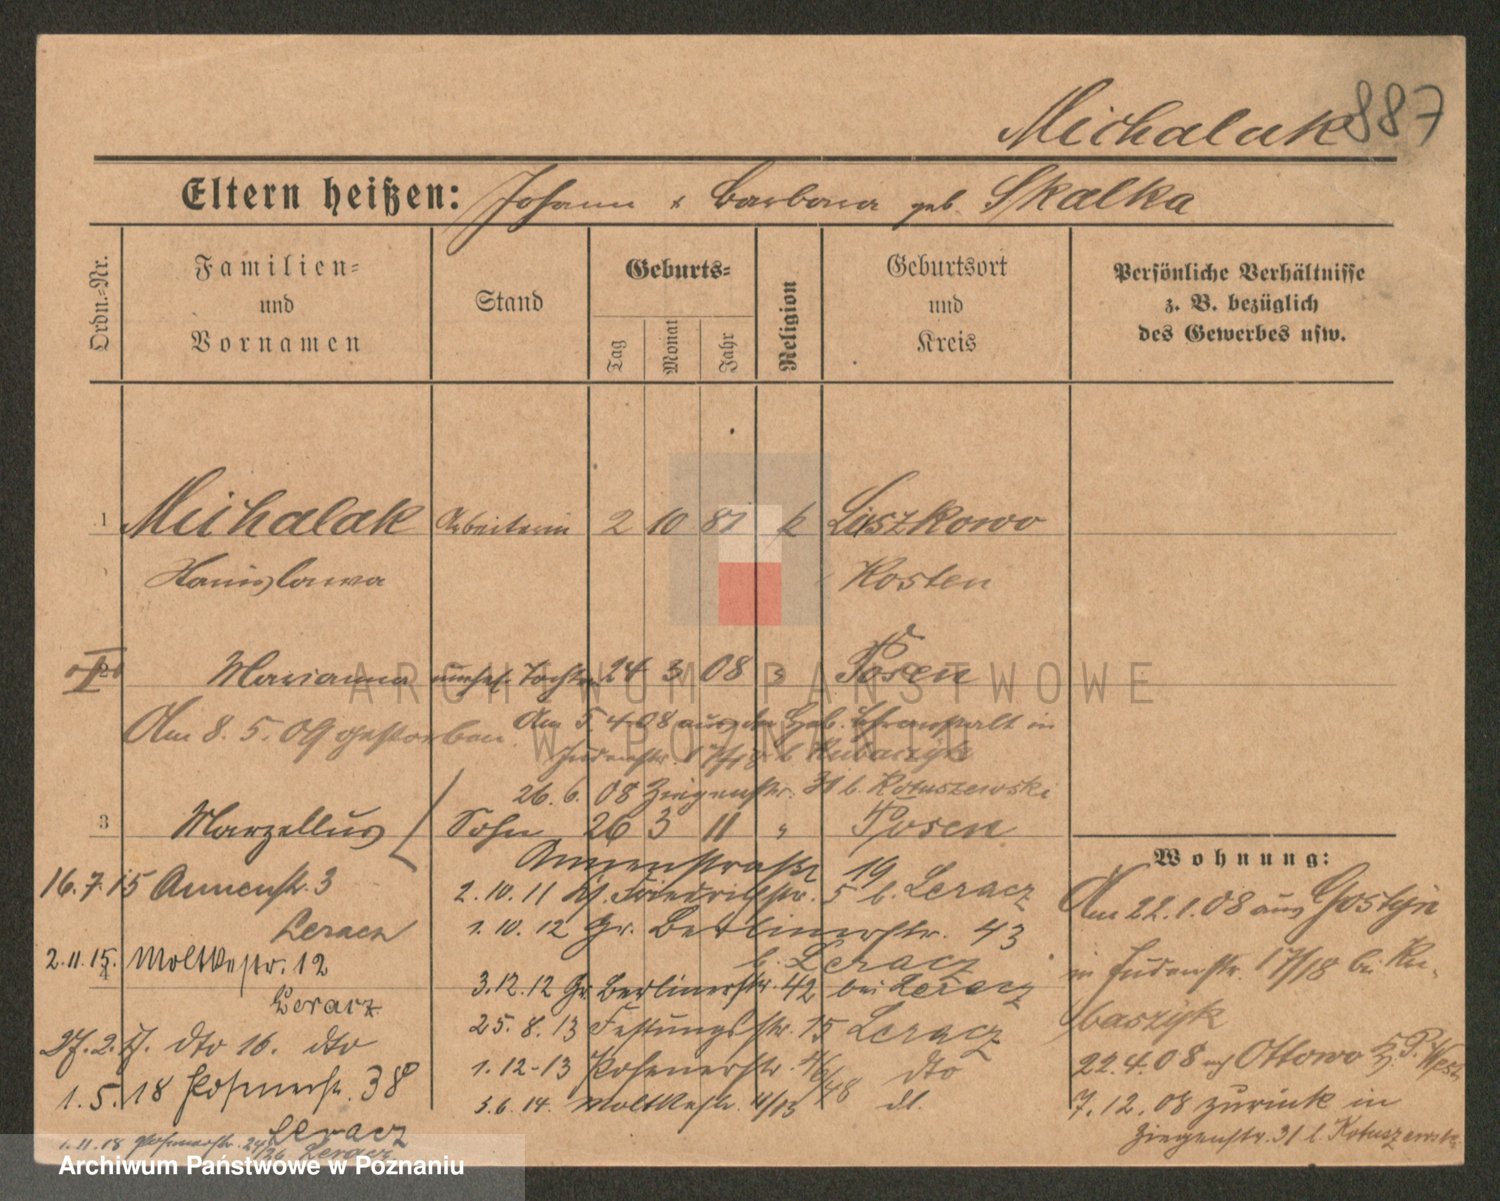 Michalak 887
Eltern heißen: Johann & Barbara geb. Skalka
Ordn.-Nr.
Familien-
und
Vornamen
Stand
Geburts-
Tag
Monat
Jahr
Religion
Geburtsort
und
Kreis
Persönliche Verhältnisse
z. B. bezüglich
des Gewerbes usw.
1 Michalak Arbeiterin 2 10 81 k Luszkowo
Stanislawa Kosten
2 Marianna unehel. Tochter 24 3 08 " Posen
Am 8. 5. 09 gestorben
Am 5 4 08 aus der Heb. Lehranstalt in
Judenstr. 17/18 b. Kubaszyk
26. 6. 08 Ziegenstr. 31 b. Kotuszewski
3 Marzellus Sohn 26 3 11 " Posen
Annenstraße 19
2. 10. 11 Friedrichstr. 5 b. Leracz
1. 10. 12 Gr. Berlinerstr. 43
b. Leracz
3. 12. 12 Gr. Berlinerstr. 42 bei Leracz
25. 8. 13 Festungsstr. 15 Leracz
1. 12-13 Posenerstr. 46/48 dto
5. 6. 14. Moltkestr. 11/13 dt.
16. 7. 15 Annenstr. 3
Leracz
2. 11. 15. Moltkestr. 12
4
Leracz
27. 2. 17. dto 16. dto
1. 5. 18 Posenerstr. 38
Leracz
1. 11. 18 Posenerstr. 24/26 Leracz
Wohnung:
Am 22. 1. 08 aus Gostyn
in Judenstr. 17/18 bei Ku-
baszyk
22. 4. 08 Ottowo P. West
7. 12. 08 zurück in
Ziegenstr. 31 b. Kotuszewski
ARCHIWUM PAŃSTWOWE
W POZNANIU
Archiwum Państwowe w Poznaniu